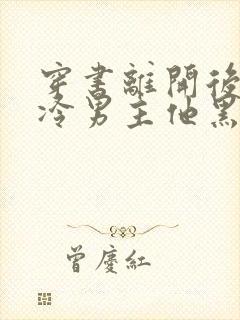 穿書離開後
冷男主他黑
曾慶紅